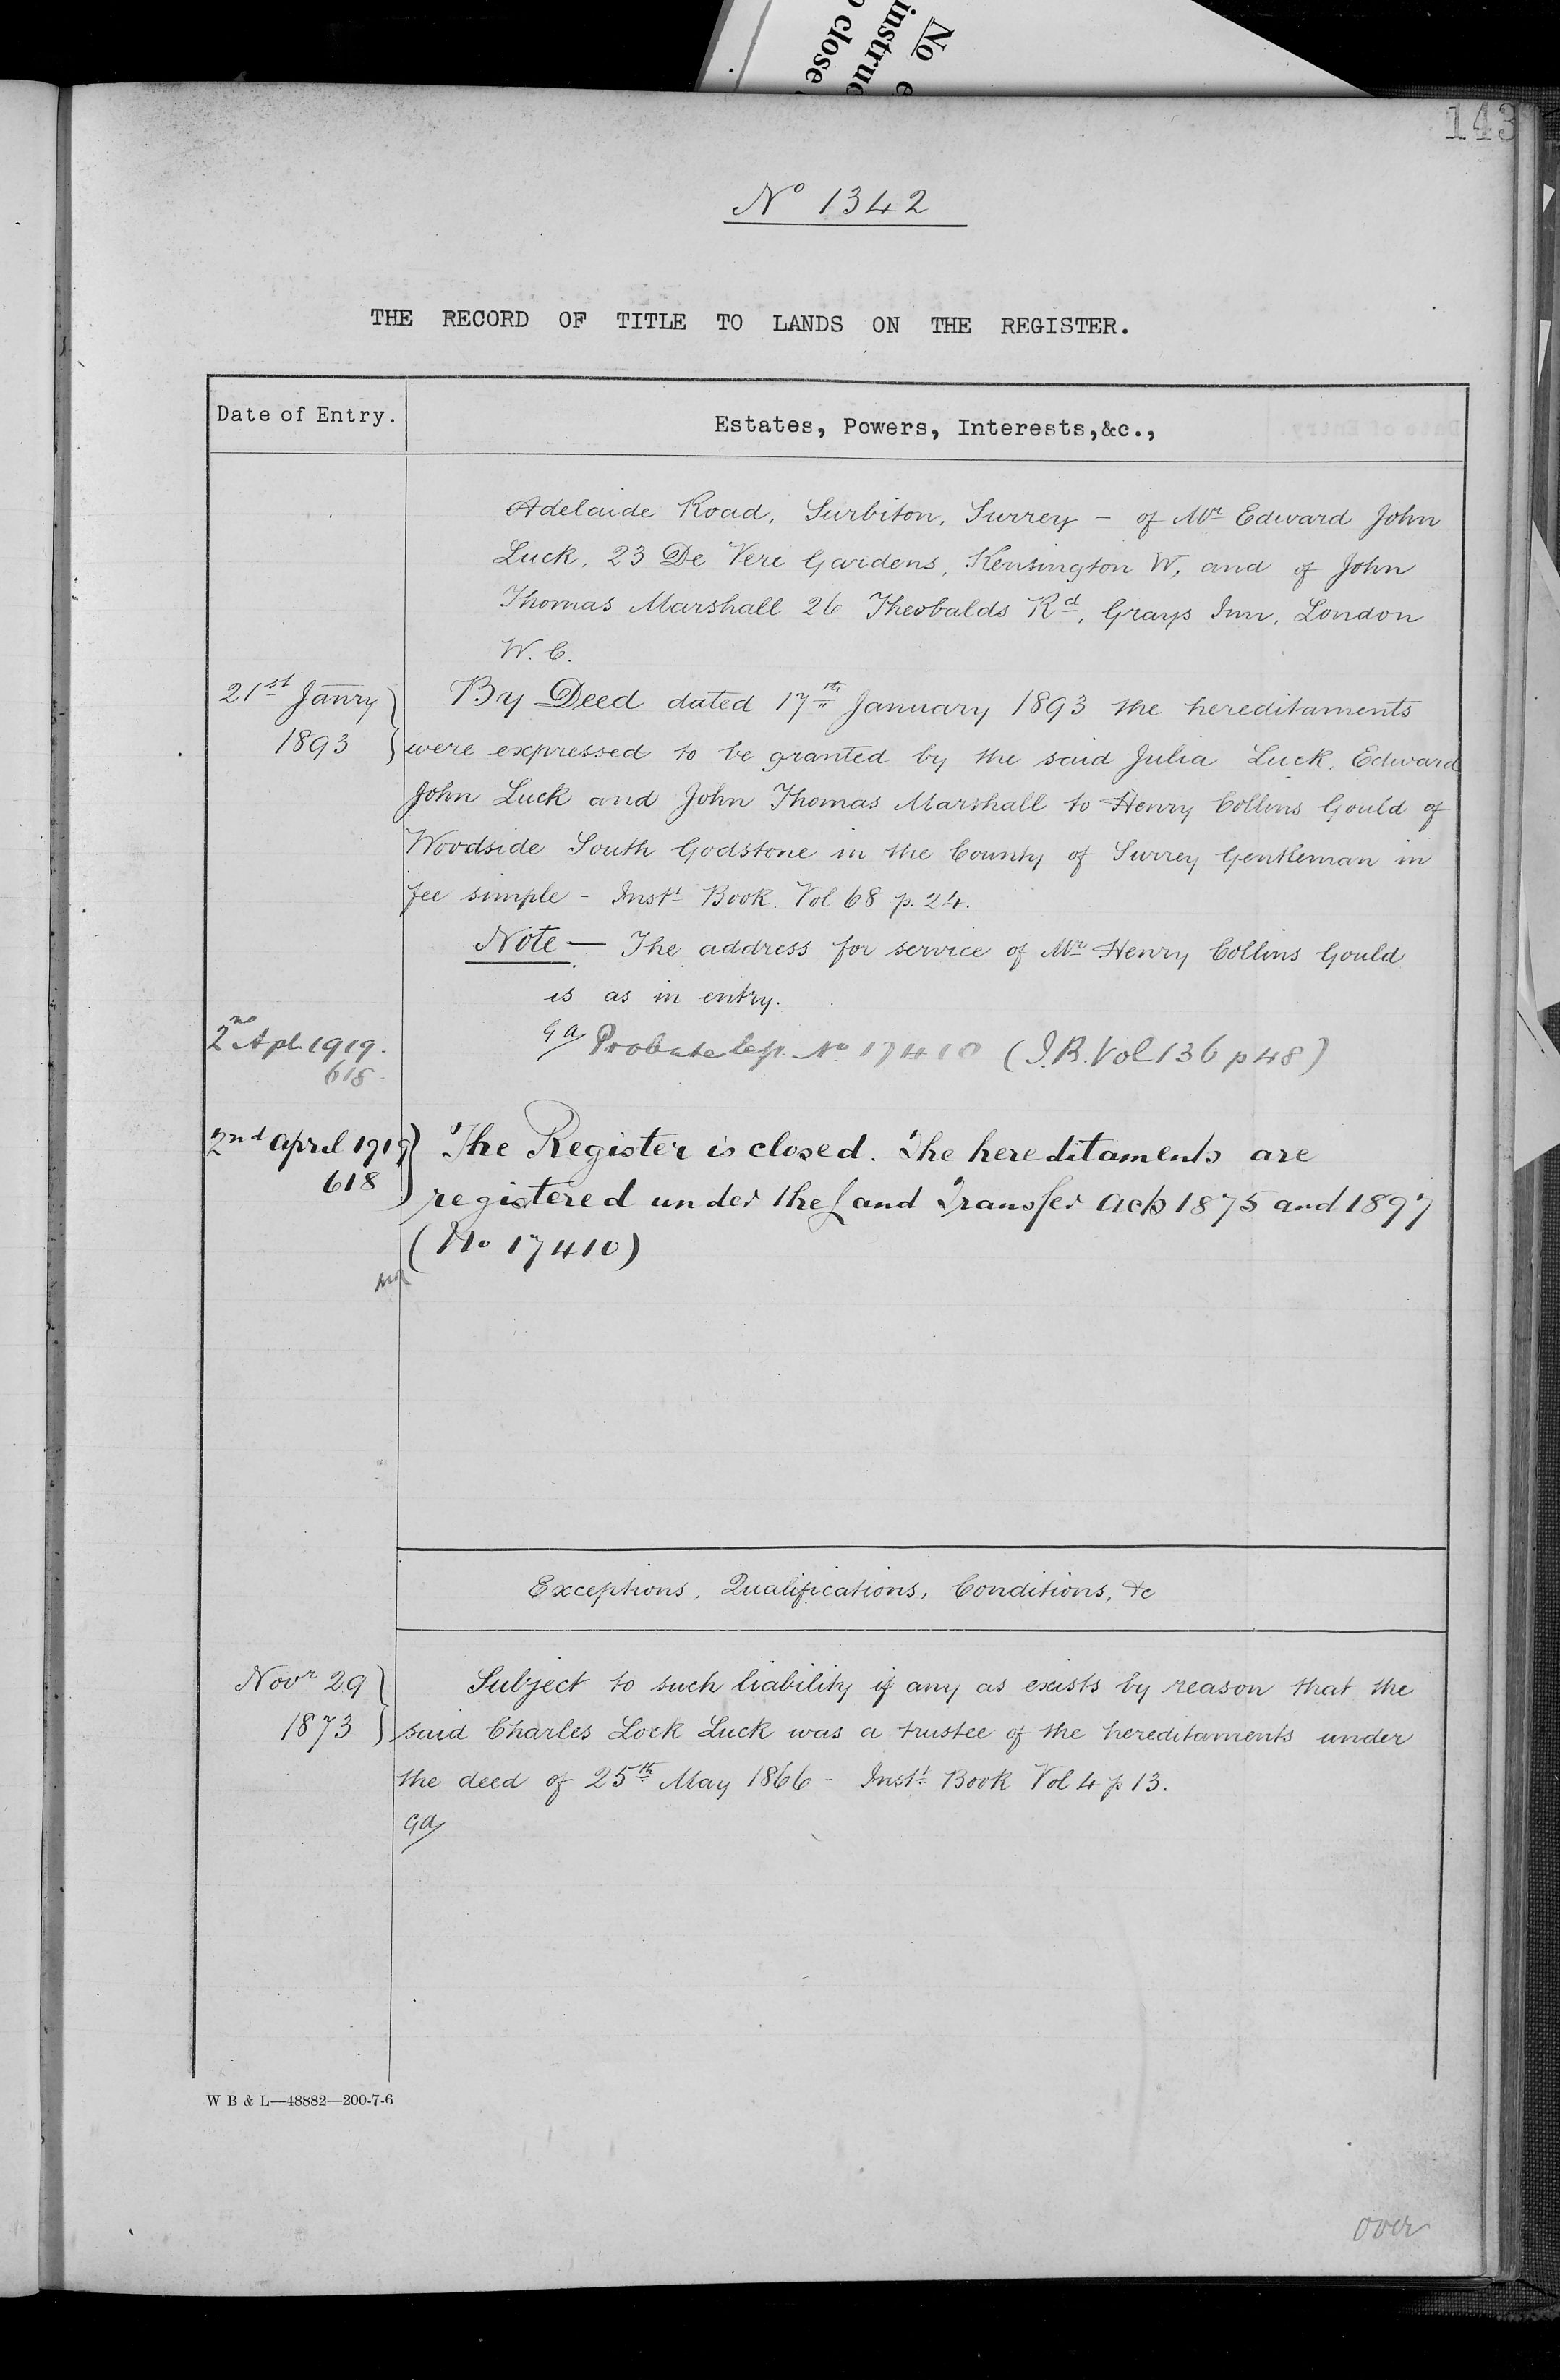 No e
instruc
o close
143
No 1342
THE RECORD OF TITLE TO LANDS ON THE REGISTER.
Date of Entry.
Estates, Powers, Interests,&c.,
Adelaide Road, Surbiton, Surrey – of Mr Edward John
Luck, 23 De Vere Gardens, Kensington W, and of John
Thomas Marshall 26 Theobalds Rd, Grays Inn, London
W. C.
21st Janry
1893
By Deed dated 17th January 1893 the hereditaments
were expressed to be granted by the said Julia Luck, Edward
John Luck and John Thomas Marshall to Henry Collins Gould of
Woodside South Godstone in the County of Surrey Gentleman in
fee simple – Inst. Book. Vol 68 p. 24.
Note — The address for service of Mr Henry Collins Gould
is as in entry.
2nd Apl. 1919.
618
Ga Probate No 17410 (I.B. Vol 136 p 48)
2nd April 1919
618
The Register is closed. The hereditaments are
registered under the Land Transfer Acts 1875 and 1897
(No 17410)
Exceptions, Qualifications, Conditions, &c
Novr 29
1873
Subject to such liability if any as exists by reason that the
said Charles Lock Luck was a trustee of the hereditaments under
the deed of 25th May 1866 – Inst. Book Vol 4 p 13.
Ga
W B & L—48882—200-7-6
over